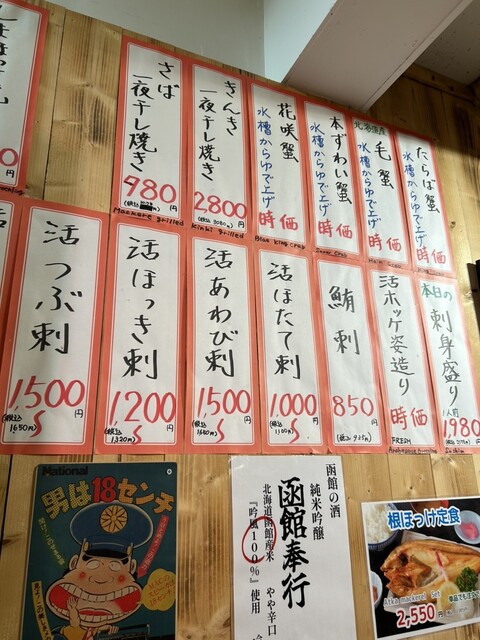 たらば蟹
水槽からゆで上げ
時価
北海道産
毛蟹
水槽からゆで上げ
時価
本ずわい蟹
水槽からゆで上げ
時価
花咲蟹
水槽からゆで上げ
時価
Blue King crab
きんき
一夜干し焼き
2800円
Kinki grilled
さば
一夜干し焼き
980円
Mackere grilled
本日の
刺身盛り
1人前
1980円
活ホッケ姿造り
時価
FRESH
鮪刺
850円
(税込935円)
活ほたて刺
1,000円
(税込1100円)
活あわび刺
1,500円
活ほっき刺
1,200円
(税込1320円)
活つぶ刺
1,500円
(税込1650円)
National
男は18センチ
函館の酒
純米吟醸
函館奉行
北海道函館産米
『吟風100%』使用
やや辛口
根ぼっけ定食
Atka mackerel Set
2,550円